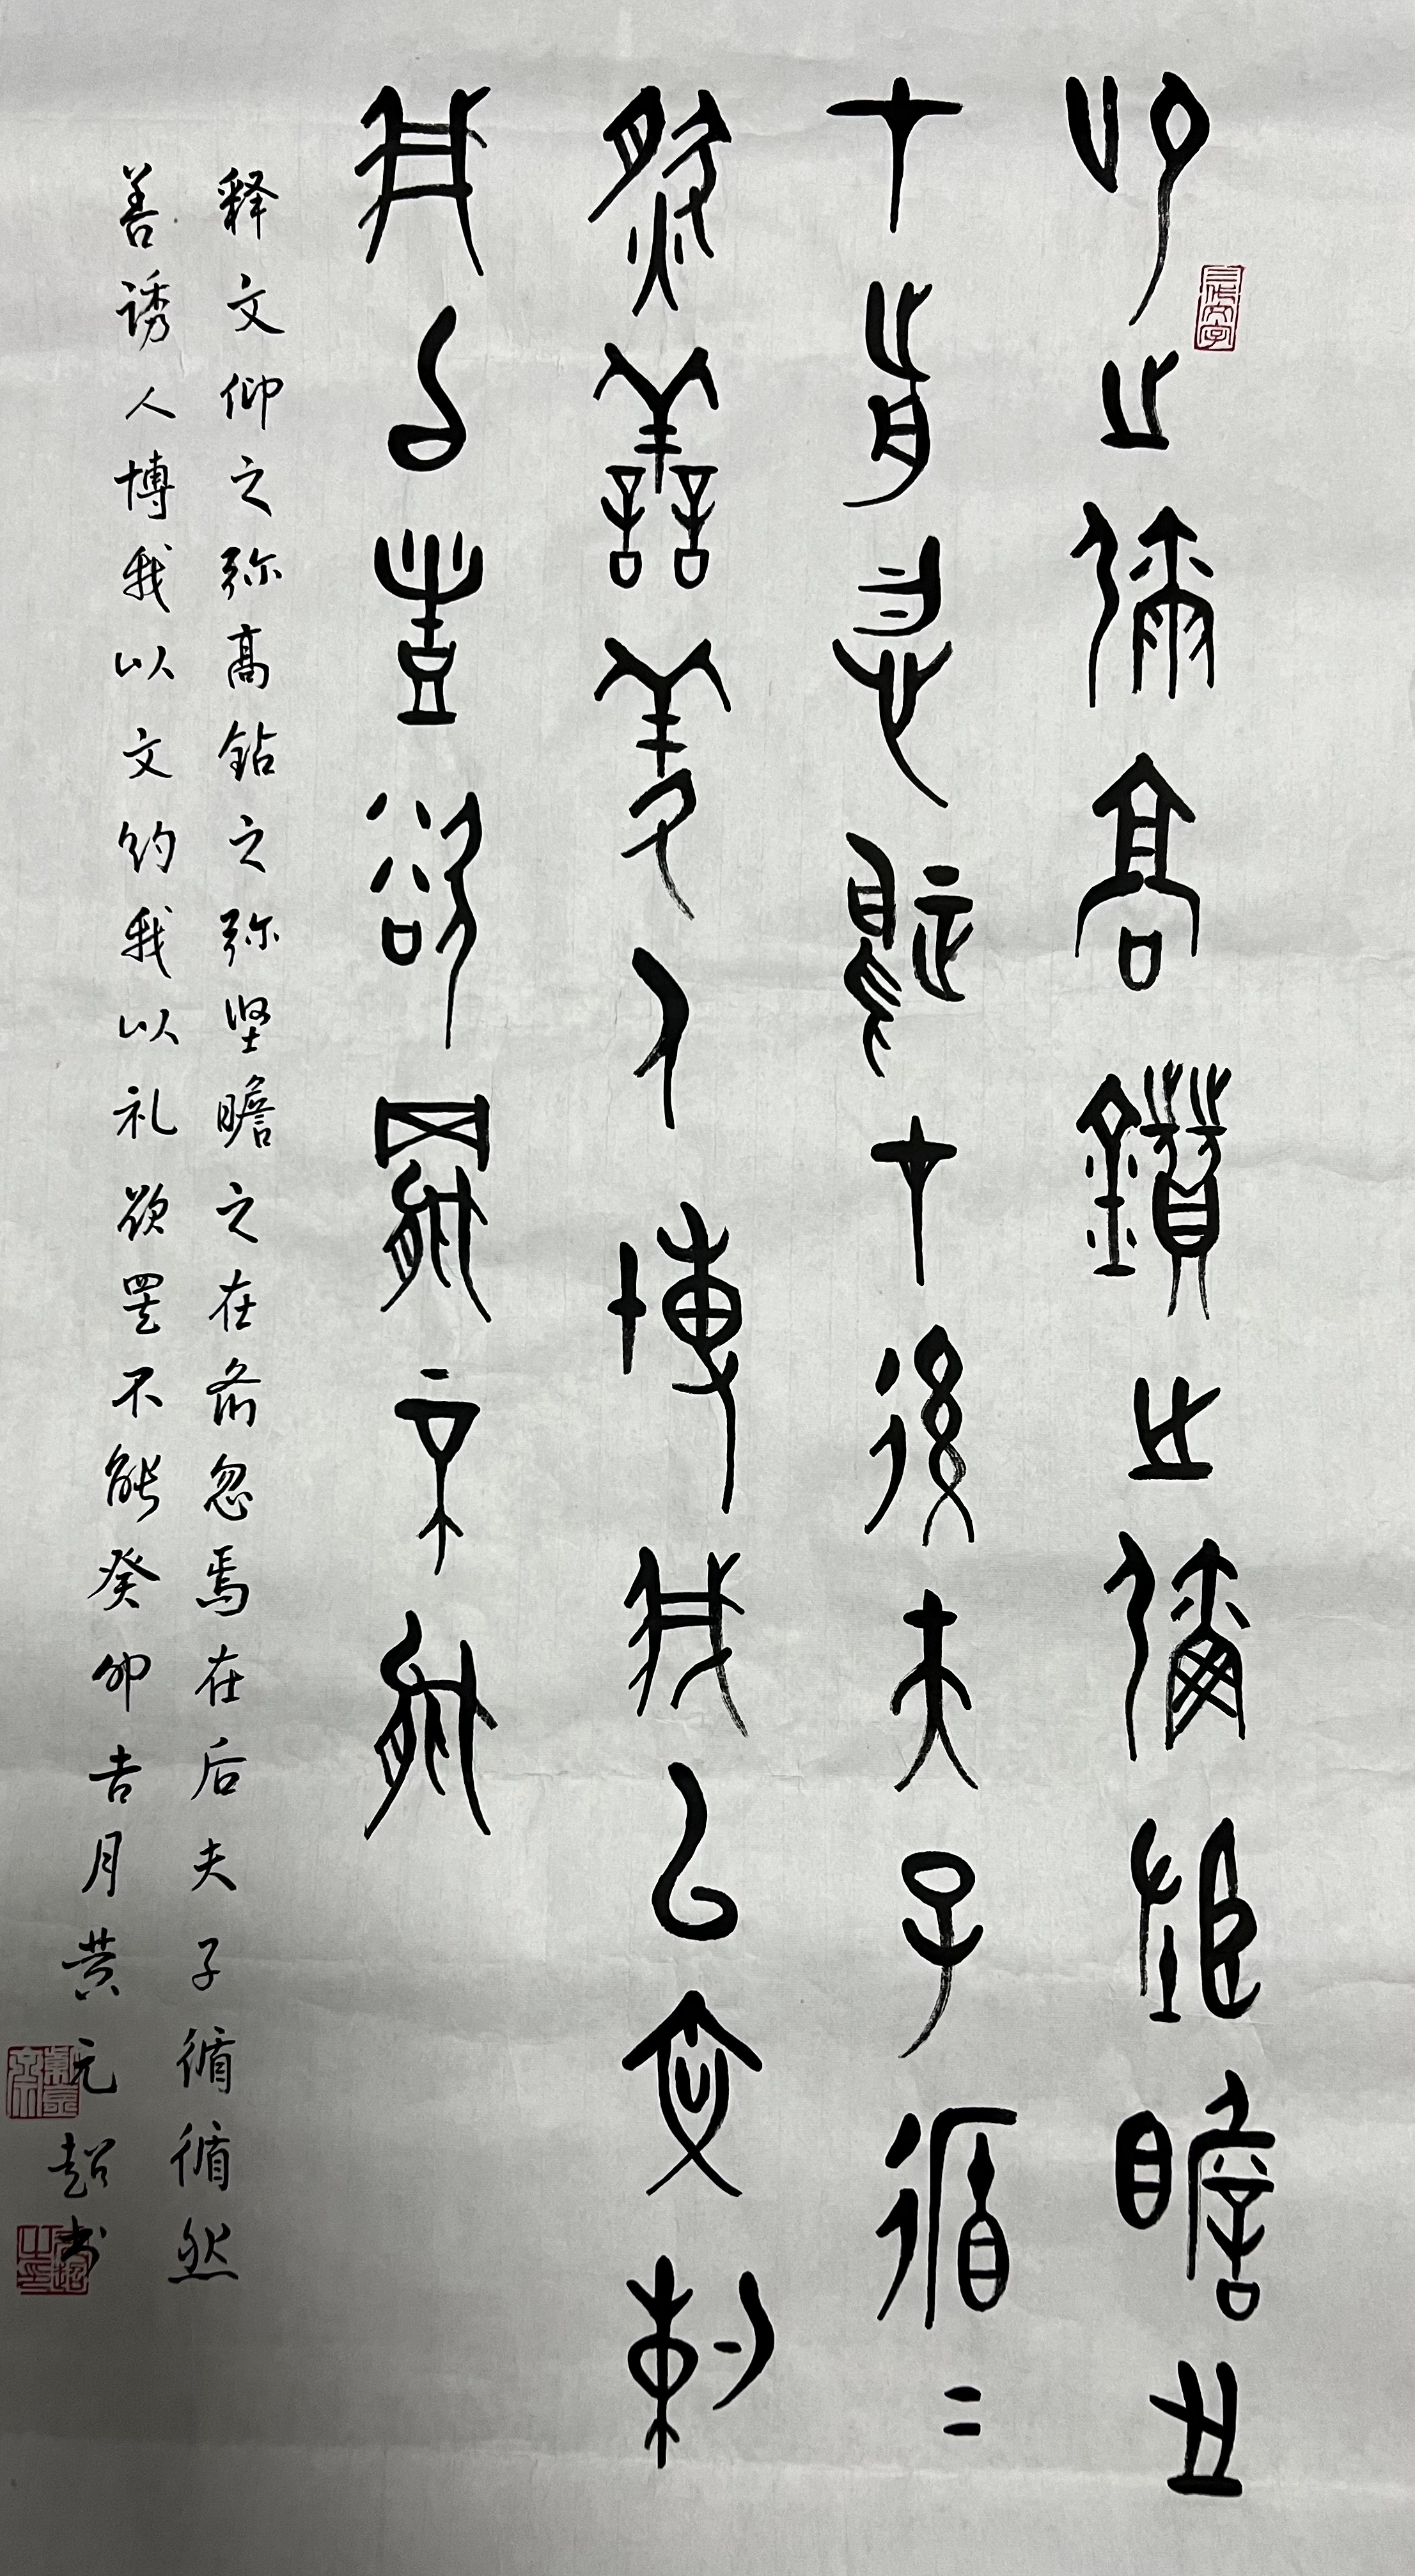 仰之彌高鑽之彌堅瞻之
才前忽焉才後夫子循=
然善羑人博我以文約
我以豊欲罷不能
释文仰之弥髙钻之弥坚瞻之在前忽焉在后夫子循循然
善诱人博我以文约我以礼欲罢不能癸卯吉月黄元超书
三代文字